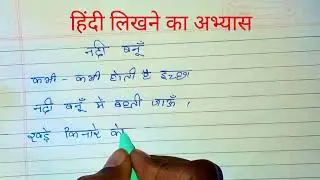 हिंदी लिखने का अभ्यास
नदी बनूँ
कभी - कभी होती है इच्छा
नदी बनूँ मैं बहती जाऊँ ,
खड़े किनारे को